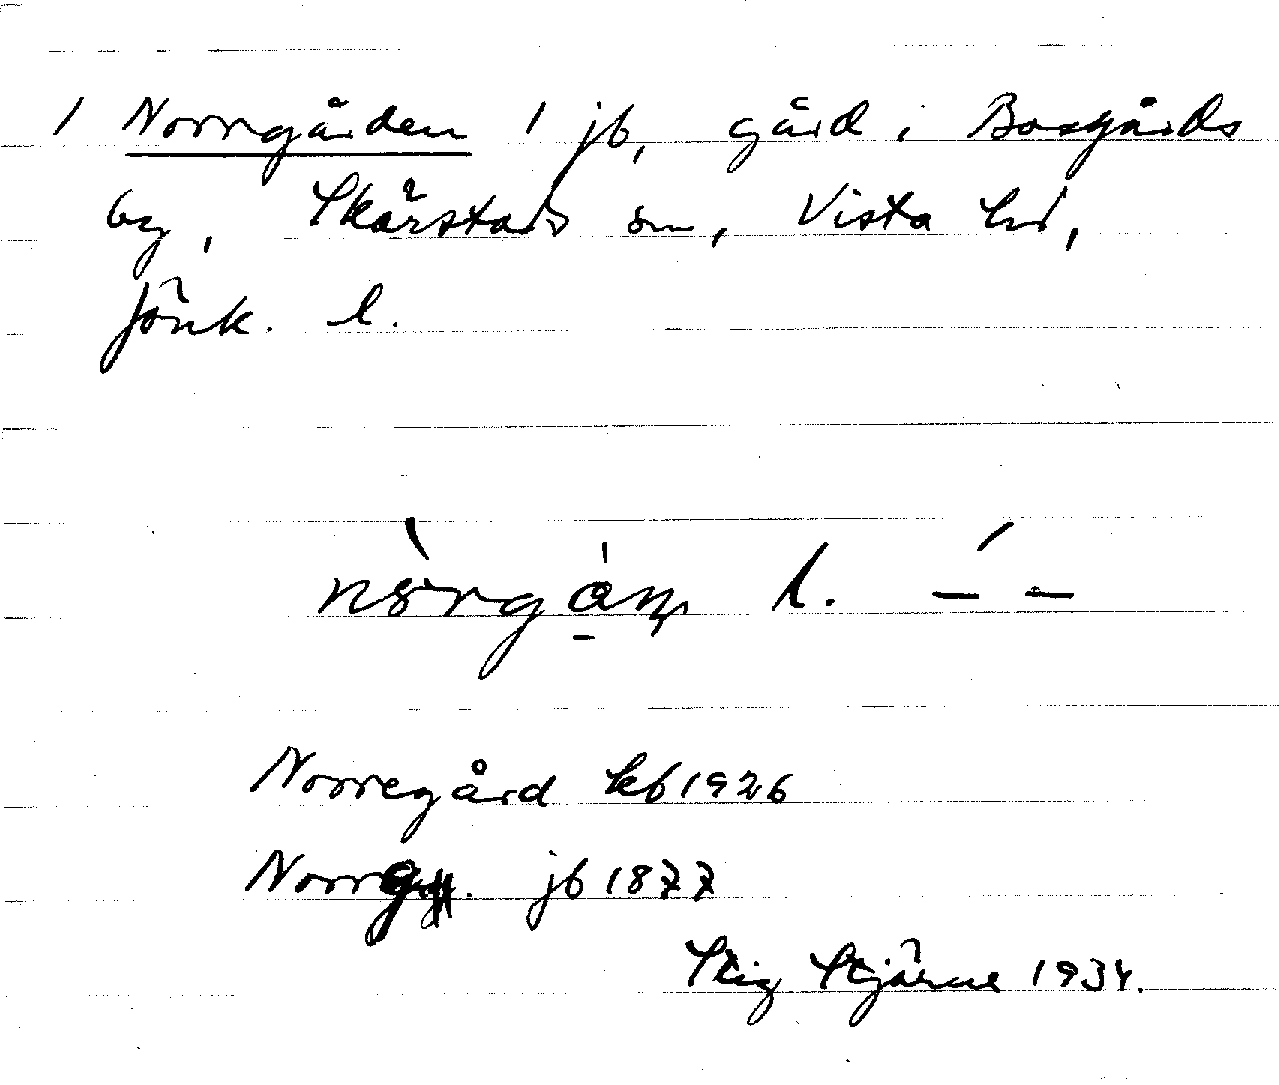 1 Norrgården 1 jb, gård i Bosgårds
by, Skärstads sn, Vista hd,
Jönk. l.
l. ‒́ ‒
Norregård kb 1926
Norrg. jb 1877
Stig Stjärne 1934.